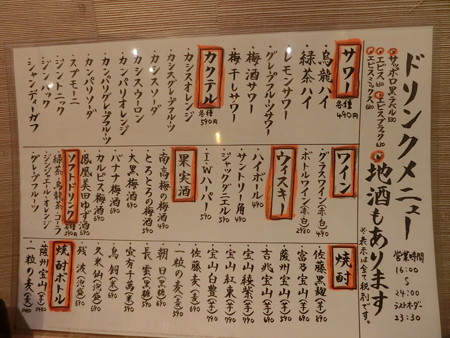 ドリンクメニュー
サッポロ黒ラベル 530
エビス 630
エビスブラック 630
エビスミックス 630
地酒もあります
※表示は全て税別です。
営業時間
16:00
〜
24:00
ラストオーダー
23:30
サワー
各種490円
・烏龍ハイ
・緑茶ハイ
・レモンサワー
・グレープフルーツサワー
・梅酒サワー
・梅干しサワー
カクテル
各種590円
・カシスオレンジ
・カシスグレープフルーツ
・カシスソーダ
・カシスウーロン
・カンパリオレンジ
・カンパリグレープフルーツ
・カンパリソーダ
・スプモーニ
・ジントニック
・ジンバック
・シャンディーガフ
ワイン
・グラスワイン(赤・白)
・ボトルワイン(赤・白)
ウィスキー
・ハイボール
・サントリー角
・ジャックダニエル
・I・Wハーパー
果実酒
・南高梅の梅酒
・とろとろの梅酒
・大黒梅酒
・バナナ梅酒
・カルピス梅酒
・鳳凰美田ゆず酒
ソフトドリンク
・緑茶・烏龍茶・コーラ
・ジンジャエール・オレンジ
・グレープフルーツ
焼酎
・佐藤黒麹
・富乃宝山
・薩州宝山
・吉兆宝山
・宝山綾紫
・宝山紅東
・宝山白豊
・佐藤麦
・一粒の麦
・朝日
・長雲
・宝山芋千萬
・鳥飼
・久米仙
・残波
焼酎ボトル
・薩州宝山
・一粒の麦